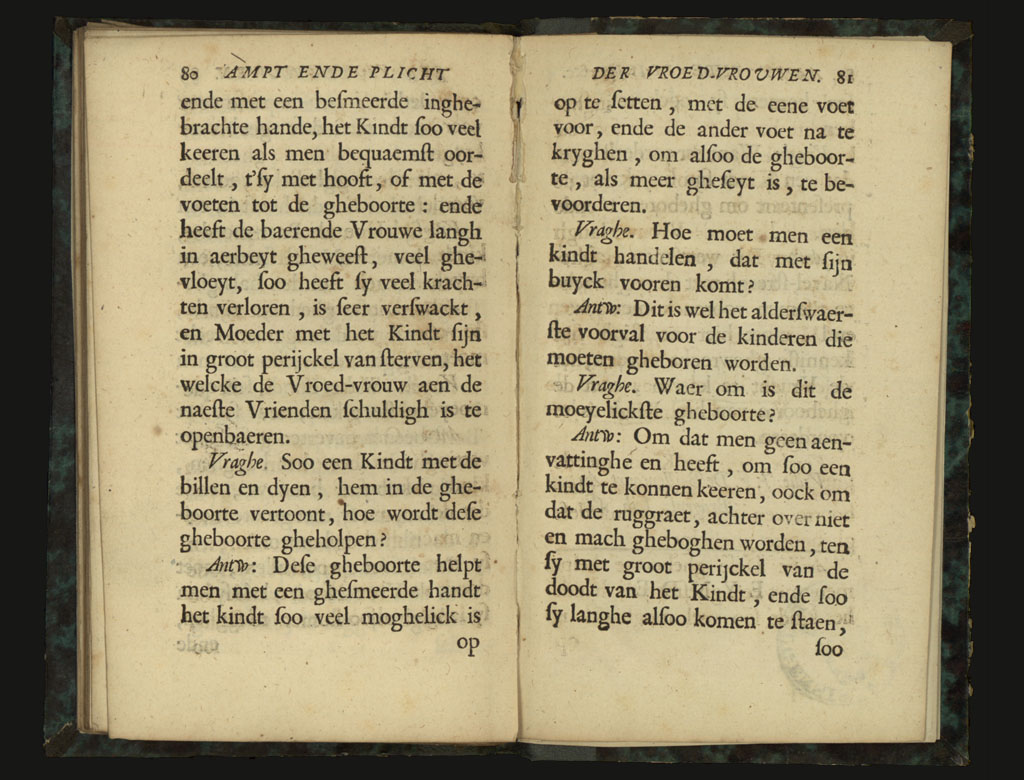 80 AMPT ENDE PLICHT
ende met een beſmeerde inghe-
brachte hande, het Kindt ſoo veel
keeren als men bequaemſt oor-
deelt, t'ſy met hooft, of met de
voeten tot de gheboorte: ende
heeft de baerende Vrouwe langh
in aerbeyt gheweeſt, veel ghe-
vloeyt, ſoo heeft ſy veel krach-
ten verloren, is ſeer verſwackt,
en Moeder met het Kindt ſijn
in groot perijckel van ſterven, het
welcke de Vroed-vrouw aen de
naeſte Vrienden ſchuldigh is te
openbaeren.
Vraghe. Soo een Kindt met de
billen en dyen, hem in de ghe-
boorte vertoont, hoe wordt deſe
gheboorte gheholpen?
Antw: Deſe gheboorte helpt
men met een gheſmeerde handt
het kindt ſoo veel moghelick is
op
DER VROED-VROUWEN. 81
op te ſetten, met de eene voet
voor, ende de ander voet na te
kryghen, om alſoo de gheboor-
te, als meer gheſeyt is, te be-
voorderen.
Vraghe. Hoe moet men een
kindt handelen, dat met ſijn
buyck vooren komt?
Antw: Dit is wel het alderſwaer-
ſte voorval voor de kinderen die
moeten gheboren worden.
Vraghe. Waer om is dit de
moeyelickſte gheboorte?
Antw: Om dat men geen aen-
vattinghe en heeft, om ſoo een
kindt te konnen keeren, oock om
dat de ruggraet, achter over niet
en mach gheboghen worden, ten
ſy met groot perijckel van de
doodt van het Kindt, ende ſoo
ſy langhe alſoo komen te ſtaen,
ſoo